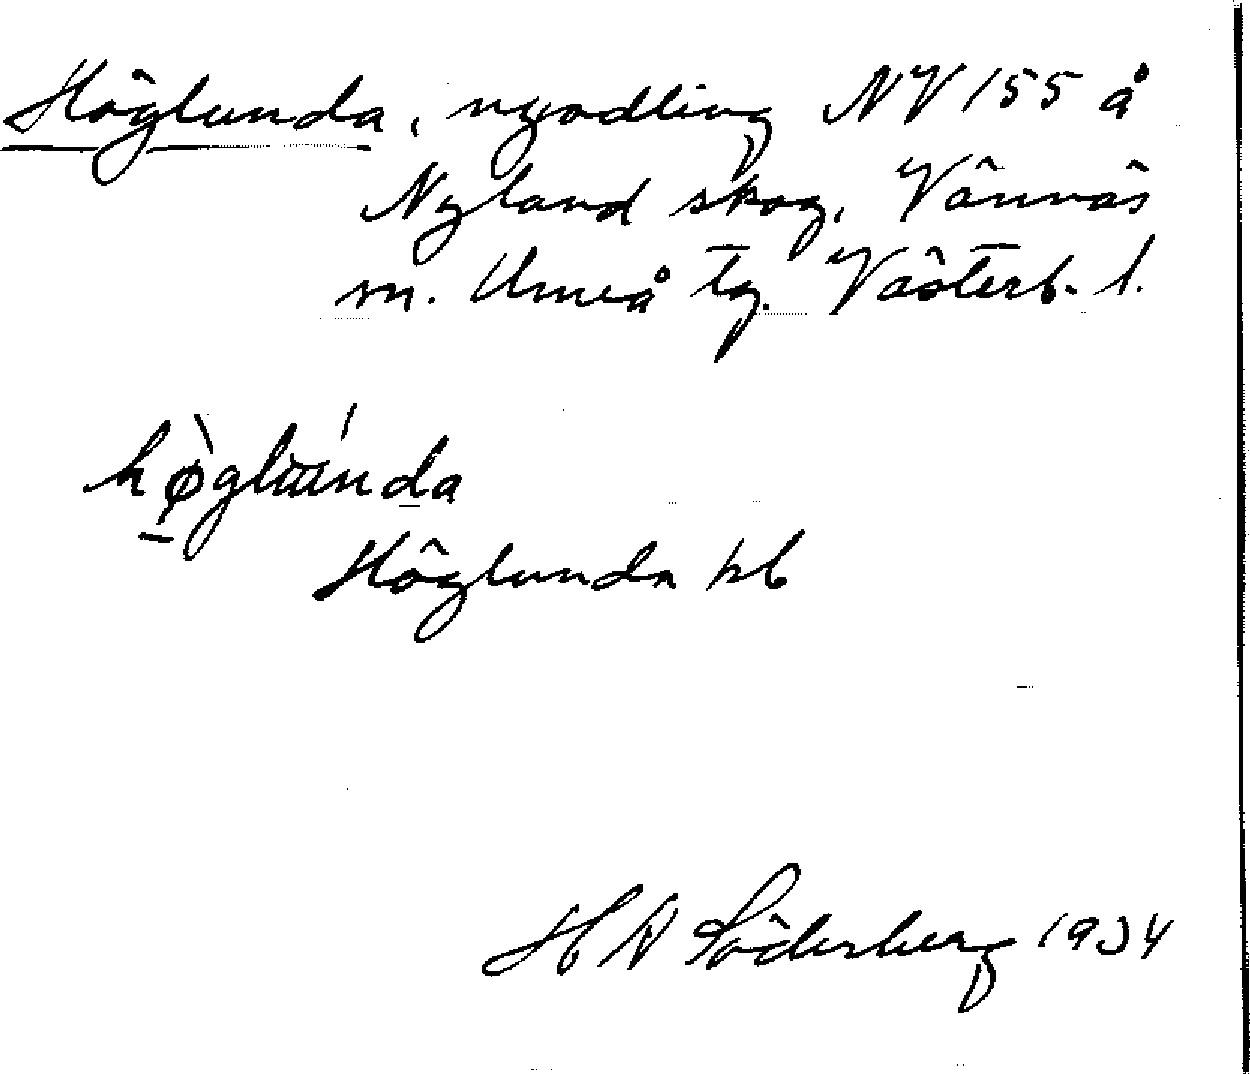 Höglunda, nyodling NV 155 å
Nyland skog, Vännäs
sn. Umeå tg. Västerb. l.
hø̀glúnda
Höglunda kb
H A Söderberg 1934